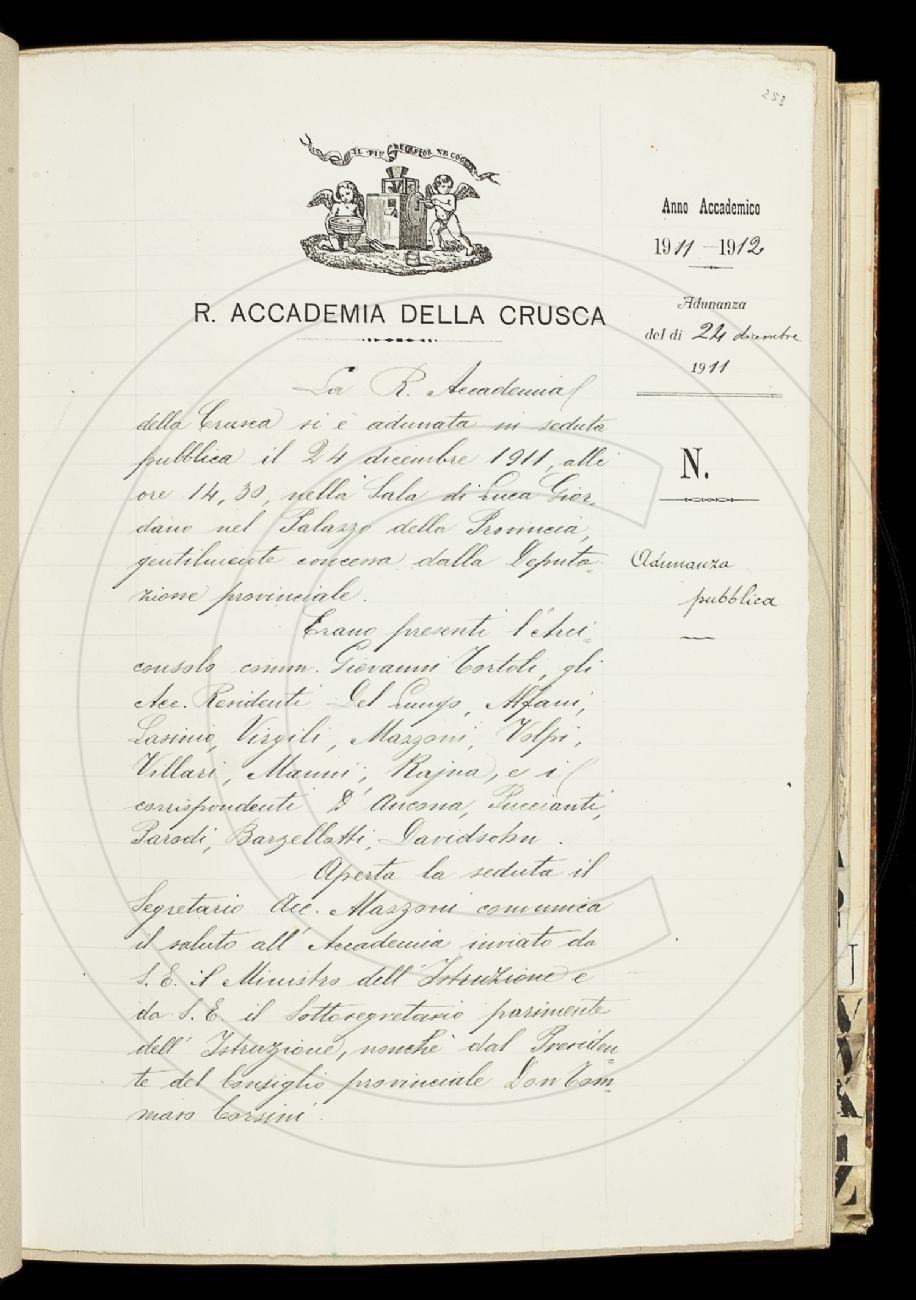 253
IL PIÙ BEL FIOR NE COGLIE
R. ACCADEMIA DELLA CRUSCA
Anno Accademico
1911-1912
Adunanza
del dì 24 dicembre
1911
N.
Adunanza
pubblica
La R. Accademia
della Crusca si è adunata in seduta
pubblica il 24 dicembre 1911, alle
ore 14,30, nella Sala di Luca Gior,
dano nel Palazzo della Provincia,
gentilmente concessa dalla Deputa-
zione provinciale.
Erano presenti l'Arci-
consolo comm. Giovanni Tortoli, gli
Acc. Residenti Del Lungo, Alfani,
Lasinio, Virgili, Mazzoni, Volpi,
Villari, Manni, Rajna, e i
corrispondenti D'Ancona, Puccianti,
Parodi, Barzellotti, Davidsohn.
Aperta la seduta il
Segretario Acc. Mazzoni comunica
il saluto all'Accademia inviato da
S. E. il Ministro dell'Istruzione e
da S. E. il Sottosegretario parimente
dell'Istruzione, nonchè dal Presiden-
te del Consiglio provinciale Don Tom-
maso Corsini.